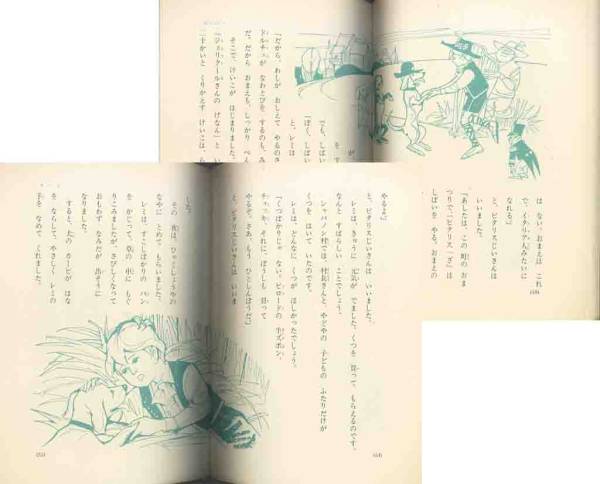 「だから、わしが おしえて やるのさ
ドルチェが なわとびを するのも、み
だ。だから おまえも、しっかり べん
そこで、けいこが はじまりました。
「ジョリクールさんの げなん」と い
二十かいと くりかえす けいこは、ら
を す
が
でも、しばい
と、レミは
「ぼく、しばい
は ない。おまえは これ
で、イタリア人みたいに
なれる」
と、ビタリスじいさんは
いいました。
「あしたは、この 町の おま
つりで、「ビタリス一ざ」は
しばいを やる。おまえの
やるよ」
と、ビタリスじいさんは いいました。
レミは、きゅうに 元気が でました。くつを 買って もらえるのです。
なんと すばらしい ことでしょう。
シャバノン村では、村長さんと、やどやの 子どもの ふたりだけが
くつを はいて いたのです。
レミは、どんなに くつが ほしかったでしょう。
「くつばかりじゃ ない。ビロードの 半ズボン、
チョッキ、それに ぼうしも 買って
やるぞ。さあ、もう ひとしんぼうだ」
と、ビタリスじいさんは いいま
した。
その 夜は、ひゃくしょうやの
なやに とめて もらいました。
レミは、すこしばかりの パン
を かじって、草の 中に もぐ
りこみましたが、さびしくなって
おもわず なみだが 出そうに
なりました。
すると、犬の カーピが はな
を ならして、やさしく レミの
手を なめて くれました。